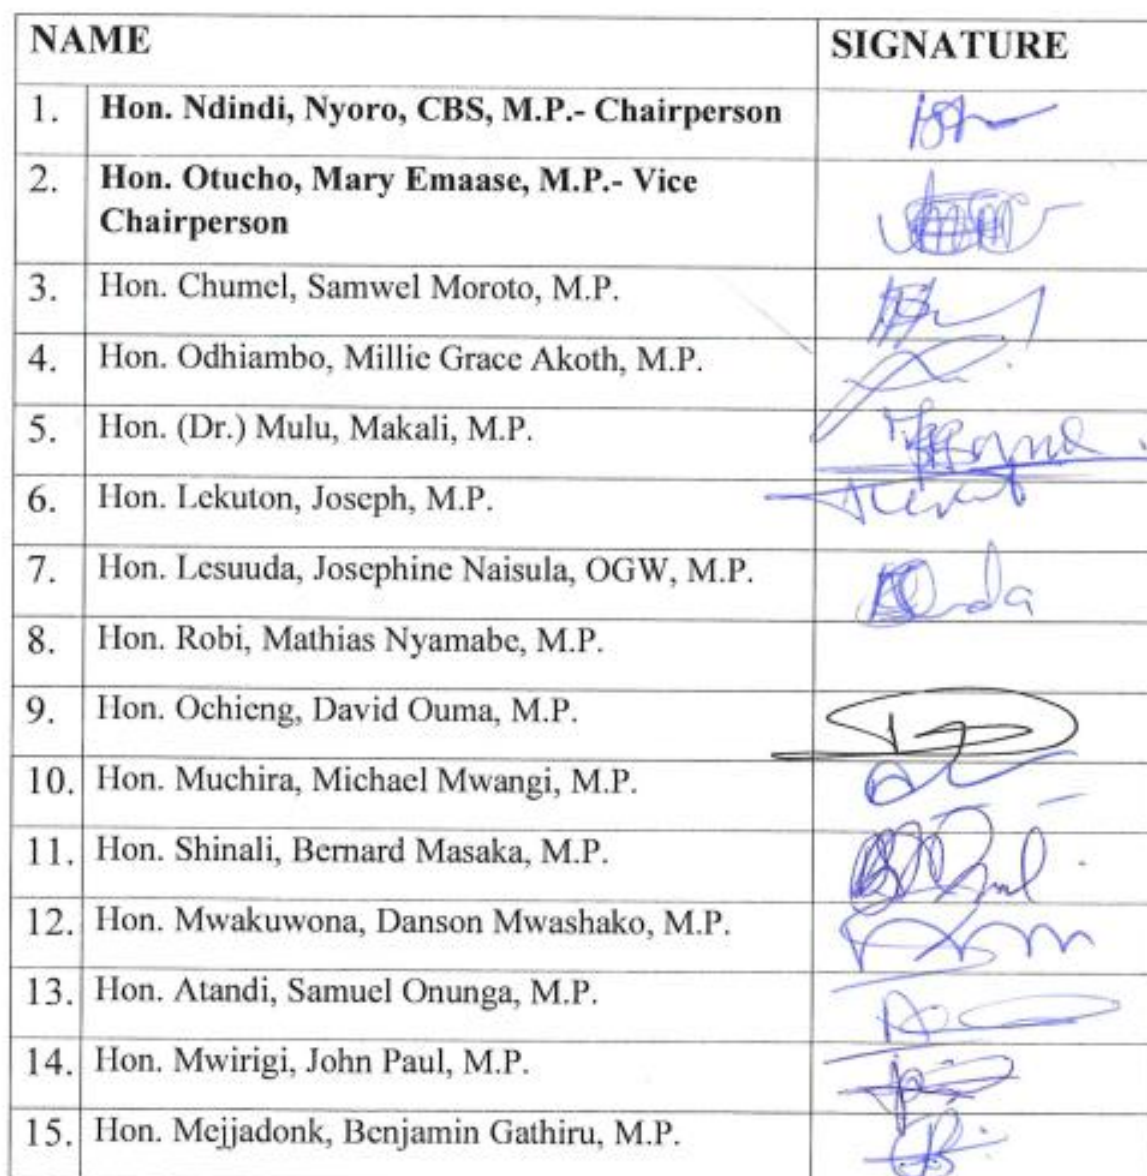 NAME SIGNATURE
1. Hon. Ndindi, Nyoro, CBS, M.P.- Chairperson
2. Hon. Otucho, Mary Emaase, M.P.- Vice
Chairperson
3. Hon. Chumel, Samwel Moroto, M.P.
4. Hon. Odhiambo, Millie Grace Akoth, M.P.
5. Hon. (Dr.) Mulu, Makali, M.P.
6. Hon. Lekuton, Joseph, M.P.
7. Hon. Lesuuda, Josephine Naisula, OGW, M.P.
8. Hon. Robi, Mathias Nyamabe, M.P.
9. Hon. Ochieng, David Ouma, M.P.
10. Hon. Muchira, Michael Mwangi, M.P.
11. Hon. Shinali, Bernard Masaka, M.P.
12. Hon. Mwakuwona, Danson Mwashako, M.P.
13. Hon. Atandi, Samuel Onunga, M.P.
14. Hon. Mwirigi, John Paul, M.P.
15. Hon. Mejjadonk, Benjamin Gathiru, M.P.